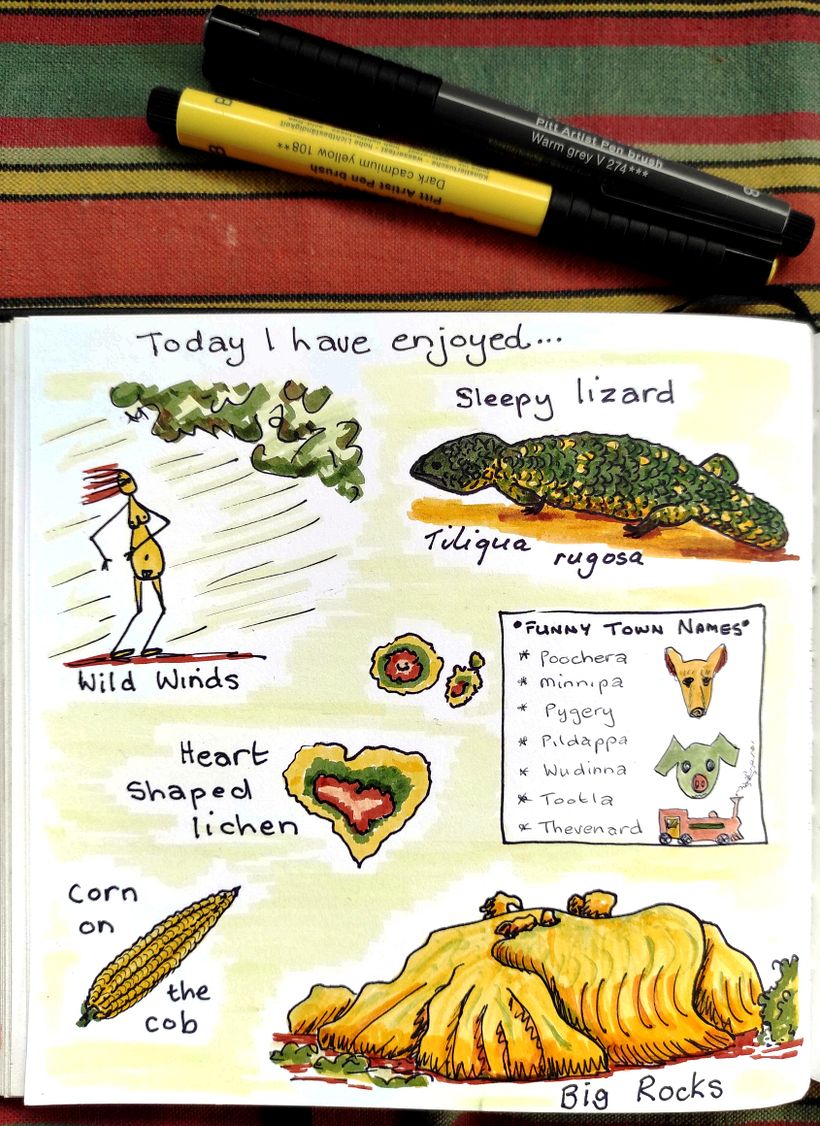 Pitt Artist Pen brush
Warm grey V 274***
B
B
Dark cadmium yellow 108**
Pitt Artist Pen brush
Today I have enjoyed...
Sleepy lizard
Tiliqua rugosa
Wild Winds
"FUNNY TOWN NAMES"
* Poochera
* Minnipa
* Pygery
* Pildappa
* Wudinna
* Tootla
* Thevenard
Heart
Shaped
lichen
Corn
on
the
cob
Big Rocks